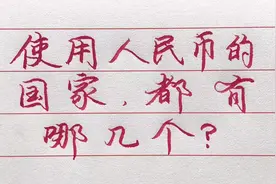 使用人民币的
国家、都有
哪几个？